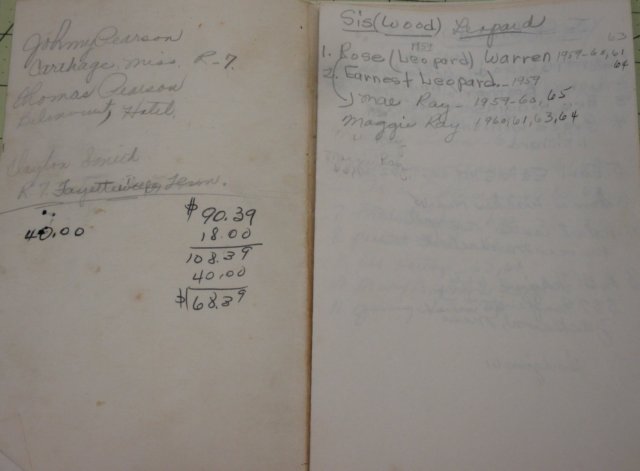 Johnny Pearson
Carthage, Miss. R-7.
Thomas Pearson
Hotel
Clayton Smith
R 7 Fayetteville, Tenn.
40.00
$90.39
18.00
108.39
40.00
$68.39
Sis (Wood) Leopard
63
1. Rose (Leopard) Warren 1959-60, 61
64
2. Earnest Leopard - 1959
mae Ray - 1959-60, 65
Maggie Ray 1960, 61, 63, 64